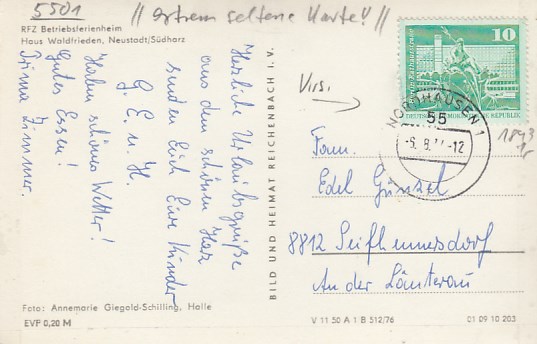 5501
// extrem seltene Karte!! //
RFZ Betriebsferienheim
Haus Waldfrieden, Neustadt/Südharz
Herzliche Urlaubsgrüße
aus dem schönen Harz
senden Euch Eure Kinder
G. E. u. H.
Haben schönes Wetter!
Gutes Essen!
Prima Zimmer.
Foto: Annemarie Giegold-Schilling, Halle
EVP 0,20 M
BILD UND HEIMAT REICHENBACH I. V.
10
Berlin, Rathausstraße
DEUTSCHE DEMOKRATISCHE REPUBLIK
NORDHAUSEN 1
55
-12
Fam.
Edel Günzel
8812 Seifhennersdorf
An der Läuterau
V 11 50 A 1 B 512/76
01 09 10 203